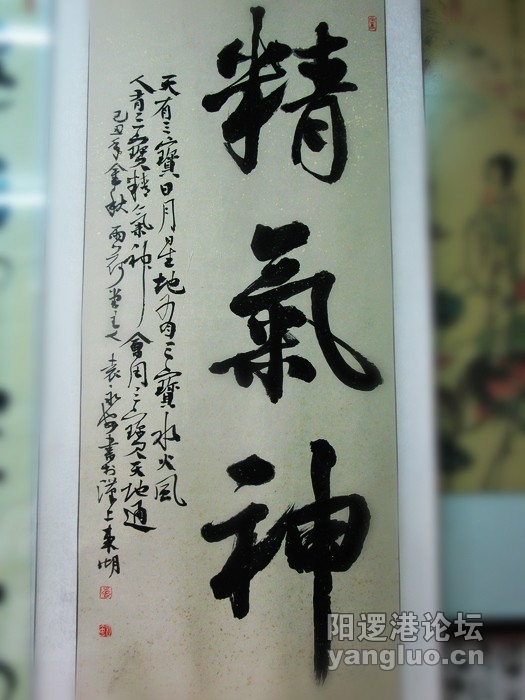 精氣神
天有三寶日月星地有三寶水火風
人有三寶精氣神會用三寶天地通
己丑年金秋雨荷堂主人袁永安書於漢上東湖
阳逻港论坛
yangluo.cn